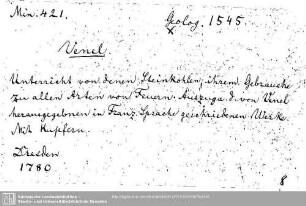 Min. 421.
Geolog. 1545
X
Venel.
Unterricht von denen Steinkohlen, ihrem Gebrauche
zu allen Arten von Feuern. Auszug a. d. von Venel
herausgegebnen in Franz. Sprache geschriebenen Werke.
Mit Kupfern.
Dresden
1780
8